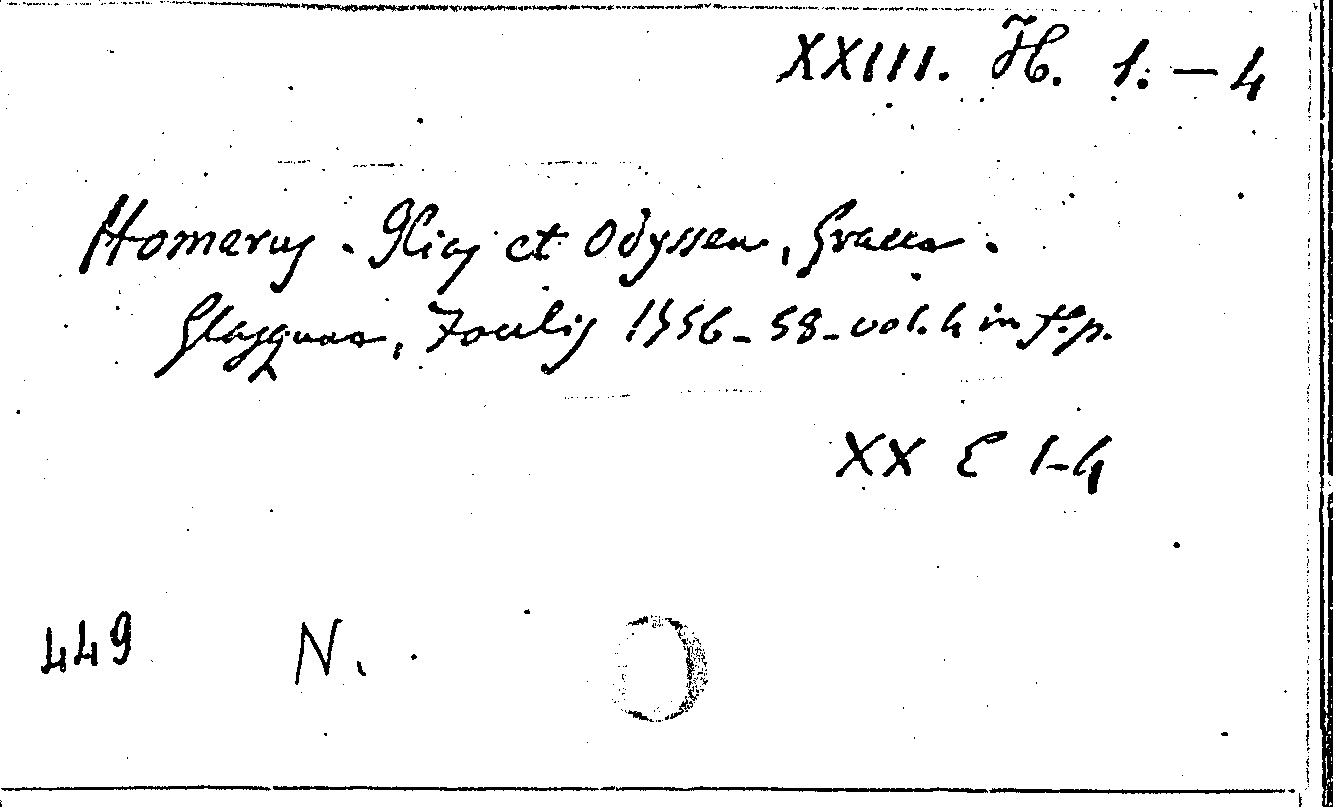 XXIII. H. 1. — 4
Homerus. Ilias et Odyssea, Graece.
Glasguae, Foulis 1756-58. vol. 4 in f.p.
XX E 1-4
449 N.